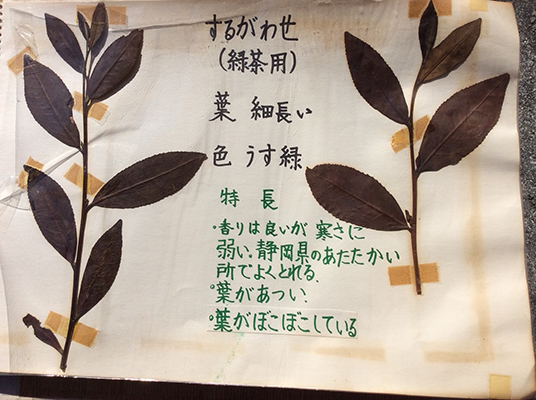 するがわせ
(緑茶用)
葉 細長い
色 うす緑
特長
・香りは良いが 寒さに
弱い. 静岡県のあたたかい
所でよくとれる.
・葉があつい.
・葉がぼこぼこしている